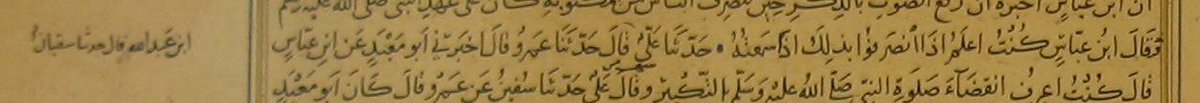 ان ابن عباس اخبره ان رفع الصوت بالذكر حين ينصرف الناس من المكتوبة كان على عهد النبي صلى الله عليه وسلم
وَقَالَ ابْنُ عَبَّاسٍ كُنْتُ اَعلَمُ اِذَا انْصَرَفُوْا بِذٰلِكَ اِذَا سَمِعْتُهُ حَدَّثَنَا عَلِيٌّ قَالَ حَدَّثَنَا عَمْرٌو قَالَ اَخبَرَنِي اَبو مَعْبَدٍ عَن ابنِ عَبَّاسٍ
ابن عبد الله قال حدثنا سفيان
قَالَ كُنْتُ اَعرِفُ انقِضَآءَ صَلٰوةِ النَّبِيِّ صَلَّى اللهُ عَلَيْهِ وَسَلَّمَ بِالتَّكْبِيْرِ وَقَالَ عَلِيٌّ حَدَّثَنَا سُفْيٰنُ عَنْ عَمْرٍو قَالَ كَانَ اَبو مَعْبَدٍ